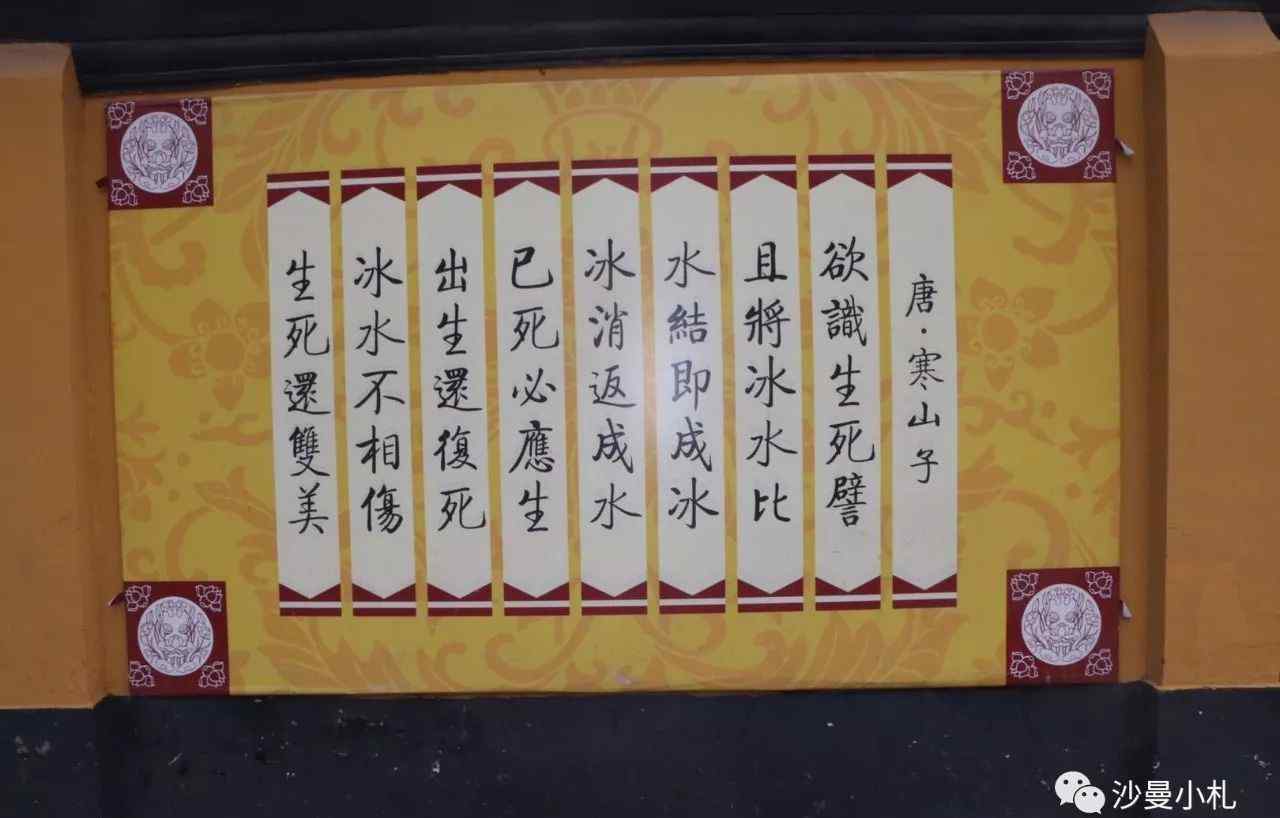 唐·寒山子
欲識生死譬
且將冰水比
水結即成冰
冰消返成水
已死必應生
出生還復死
冰水不相傷
生死還雙美
沙曼小札